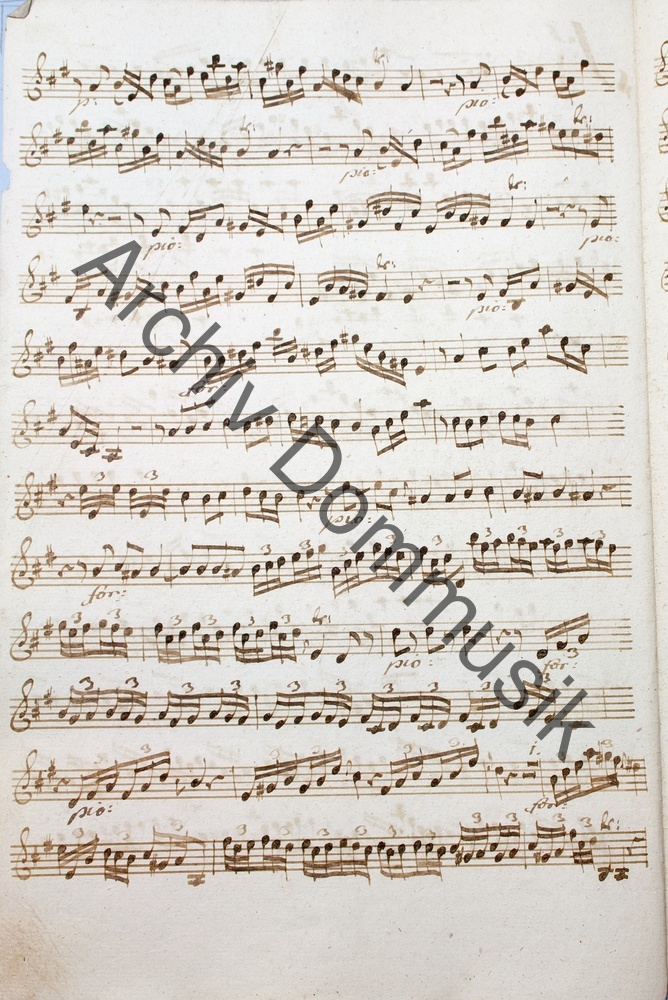 p: tr: pio:
tr: pio: tr:
pio: tr: pio:
tr: pio:
3 3 pio:
for: 3 3 3 3 3 3 3
3 3 3 3 3 tr: pio: for: 3
3 3 3 3 3 3 3 3
pio: 3 3 3 3 1. for: 3
3 3 3 3 3 3 3 3 3 3 3 tr:
Archiv Dommusik